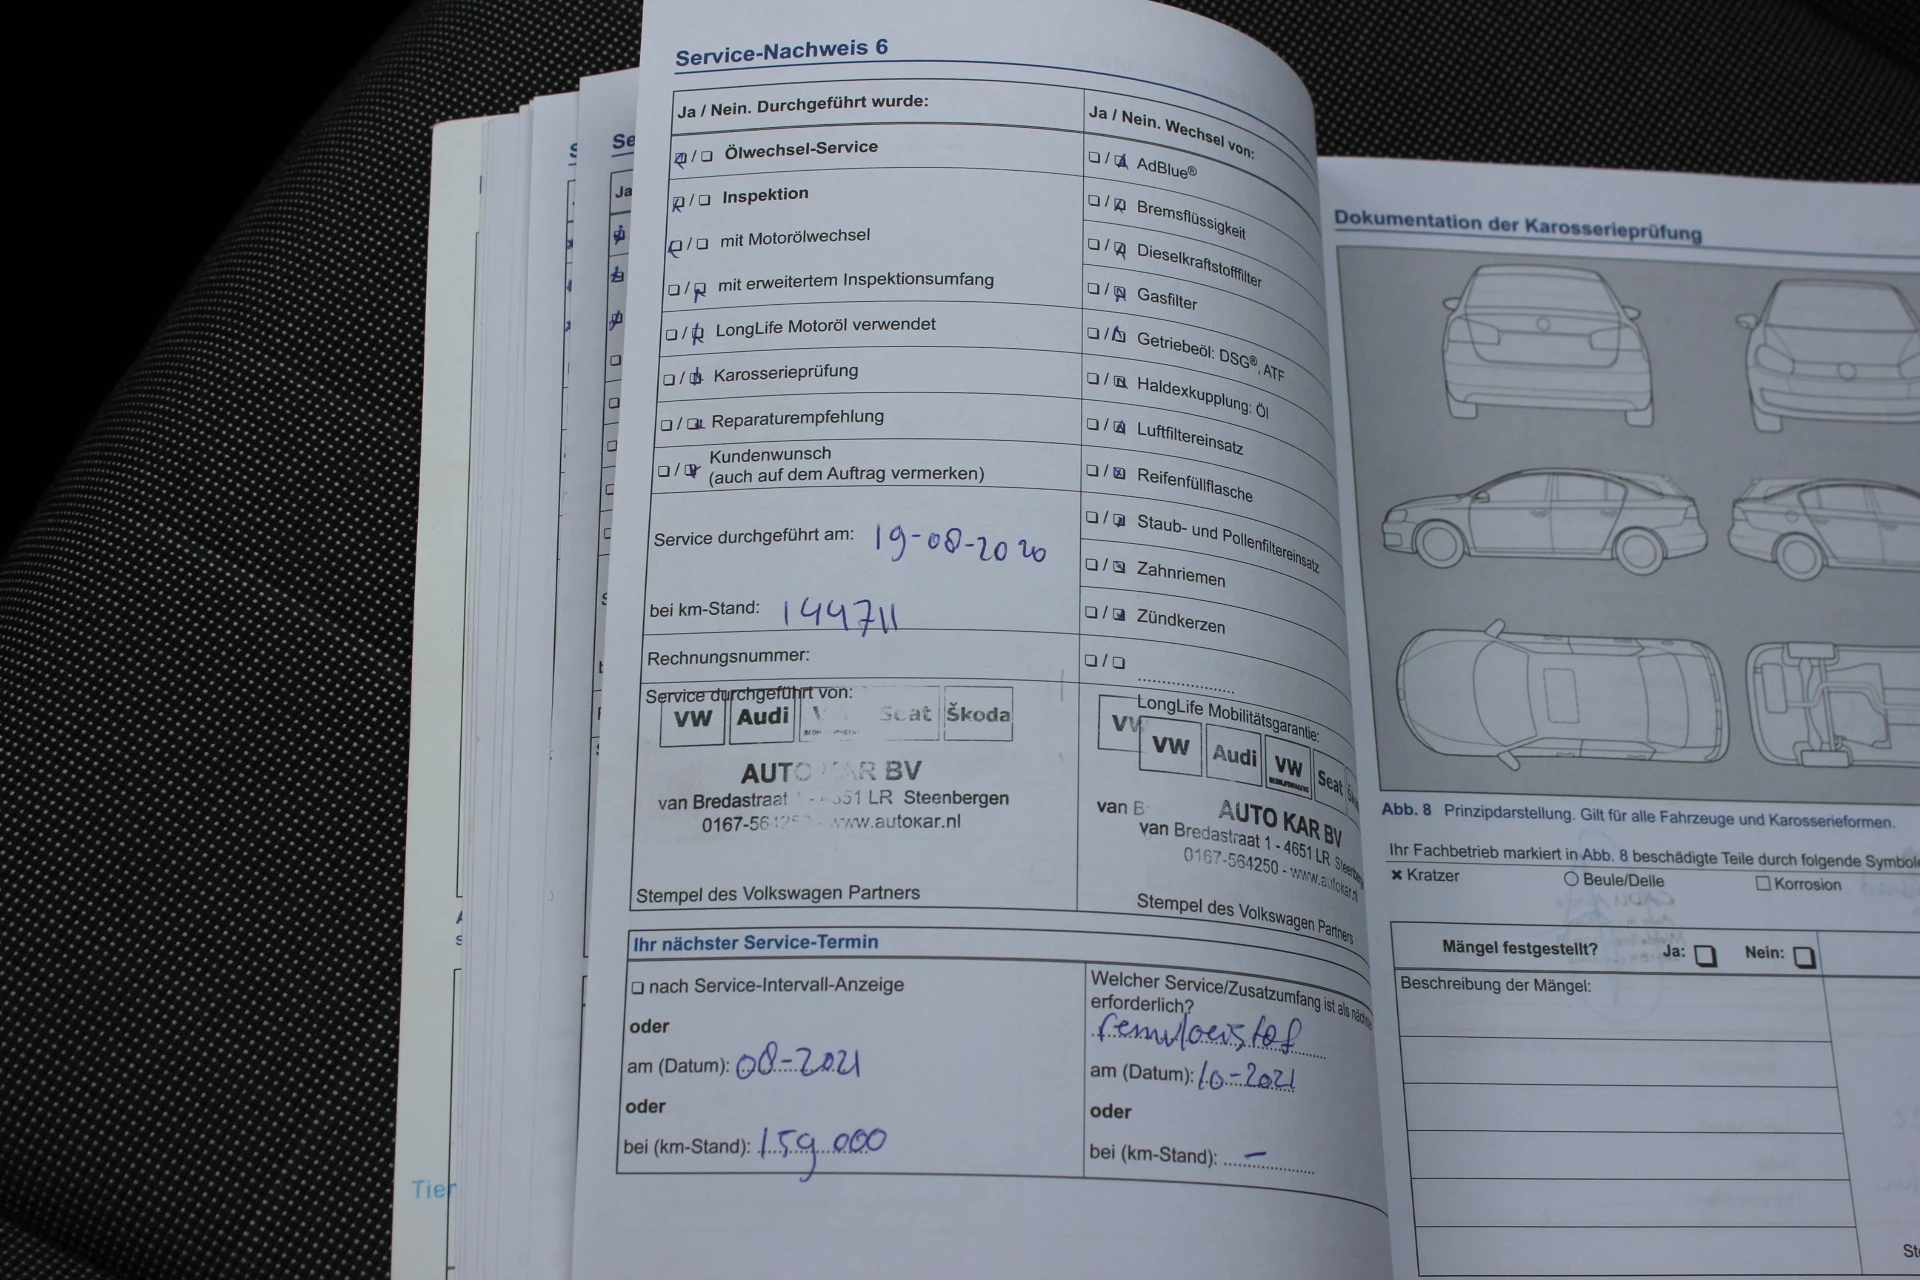 Service-Nachweis 6
Ja / Nein. Durchgeführt wurde:
☒ / ☐ Ölwechsel-Service
☒ / ☐ Inspektion
☒ / ☐ mit Motorölwechsel
☐ / ☒ mit erweitertem Inspektionsumfang
☐ / ☒ LongLife Motoröl verwendet
☐ / ☒ Karosserieprüfung
☐ / ☒ Reparaturempfehlung
☐ / ☒ Kundenwunsch
(auch auf dem Auftrag vermerken)
Service durchgeführt am: 19-08-2020
bei km-Stand: 144711
Rechnungsnummer:
Service durchgeführt von:
VW Audi Seat Škoda
AUTO KAR BV
van Bredastraat 4651 LR Steenbergen
0167-564250 - www.autokar.nl
Stempel des Volkswagen Partners
Ja / Nein. Wechsel von:
☐ / ☒ AdBlue®
☐ / ☒ Bremsflüssigkeit
☐ / ☒ Dieselkraftstofffilter
☐ / ☒ Gasfilter
☐ / ☒ Getriebeöl: DSG®, ATF
☐ / ☒ Haldexkupplung: Öl
☐ / ☒ Luftfiltereinsatz
☐ / ☒ Reifenfüllflasche
☐ / ☒ Staub- und Pollenfiltereinsatz
☐ / ☒ Zahnriemen
☐ / ☒ Zündkerzen
☐ / ☐
LongLife Mobilitätsgarantie:
VW
VW Audi VW Seat
van B
AUTO KAR BV
van Bredastraat 1 - 4651 LR
0167-564250 - www.autokar.nl
Stempel des Volkswagen Partners
Ihr nächster Service-Termin
☐ nach Service-Intervall-Anzeige
oder
am (Datum): 08-2021
oder
bei (km-Stand): 159.000
Welcher Service/Zusatzumfang ist als
erforderlich?
remvloeistof
am (Datum): 10-2021
oder
bei (km-Stand): -
Dokumentation der Karosserieprüfung
Abb. 8 Prinzipdarstellung. Gilt für alle Fahrzeuge und Karosserieformen.
Ihr Fachbetrieb markiert in Abb. 8 beschädigte Teile durch folgende Symbole
✖ Kratzer ○ Beule/Delle ☐ Korrosion
Mängel festgestellt? Ja: ☐ Nein: ☐
Beschreibung der Mängel:
Se
Ja
Tier